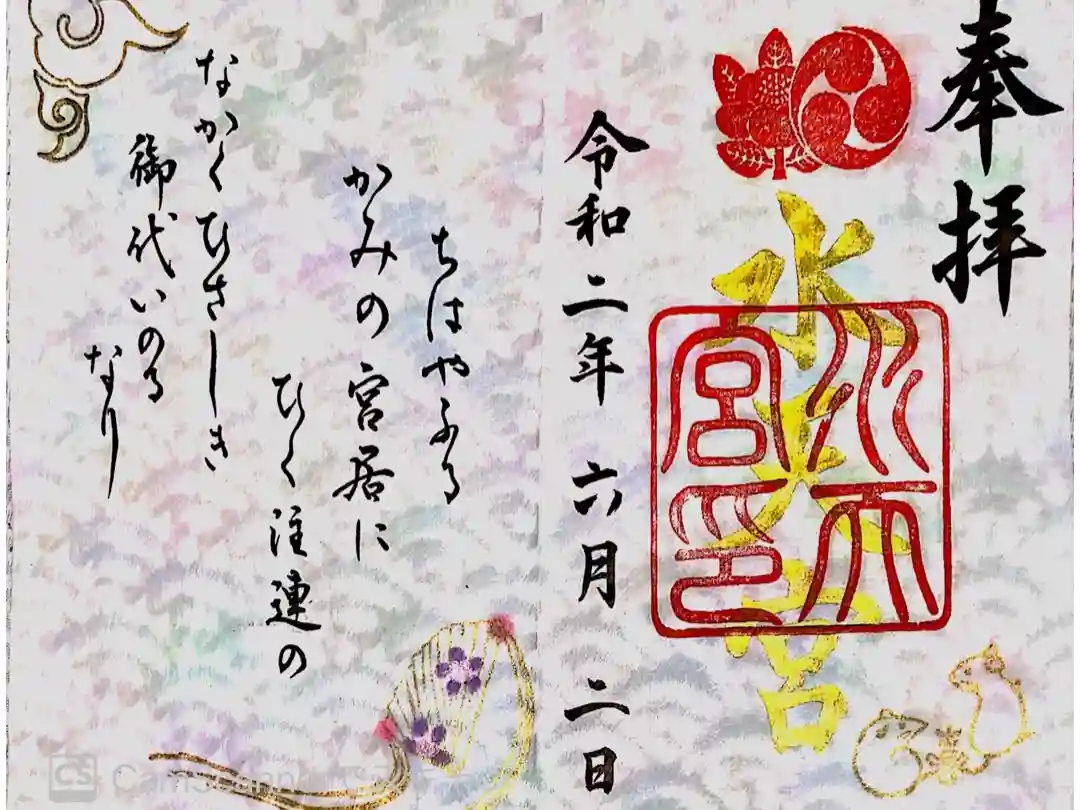 奉拝
水天宮
水天宮印
令和二年 六月 二日
ちはやふる
かみの宮居に
ひく注連の
なかくひさしき
御代いのる
なり
CS CamScanner